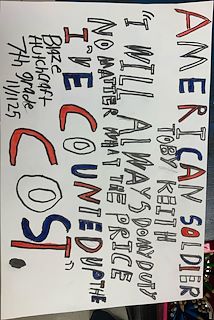 AMERICAN SOLDIER
TOBY KEIITH
"I WILL ALWAYS DO MY DUTY
NO MATTER WHAT THE PRICE
I'VE COUNTED UP THE
COST"
Blaze
7th grade
11/1/25